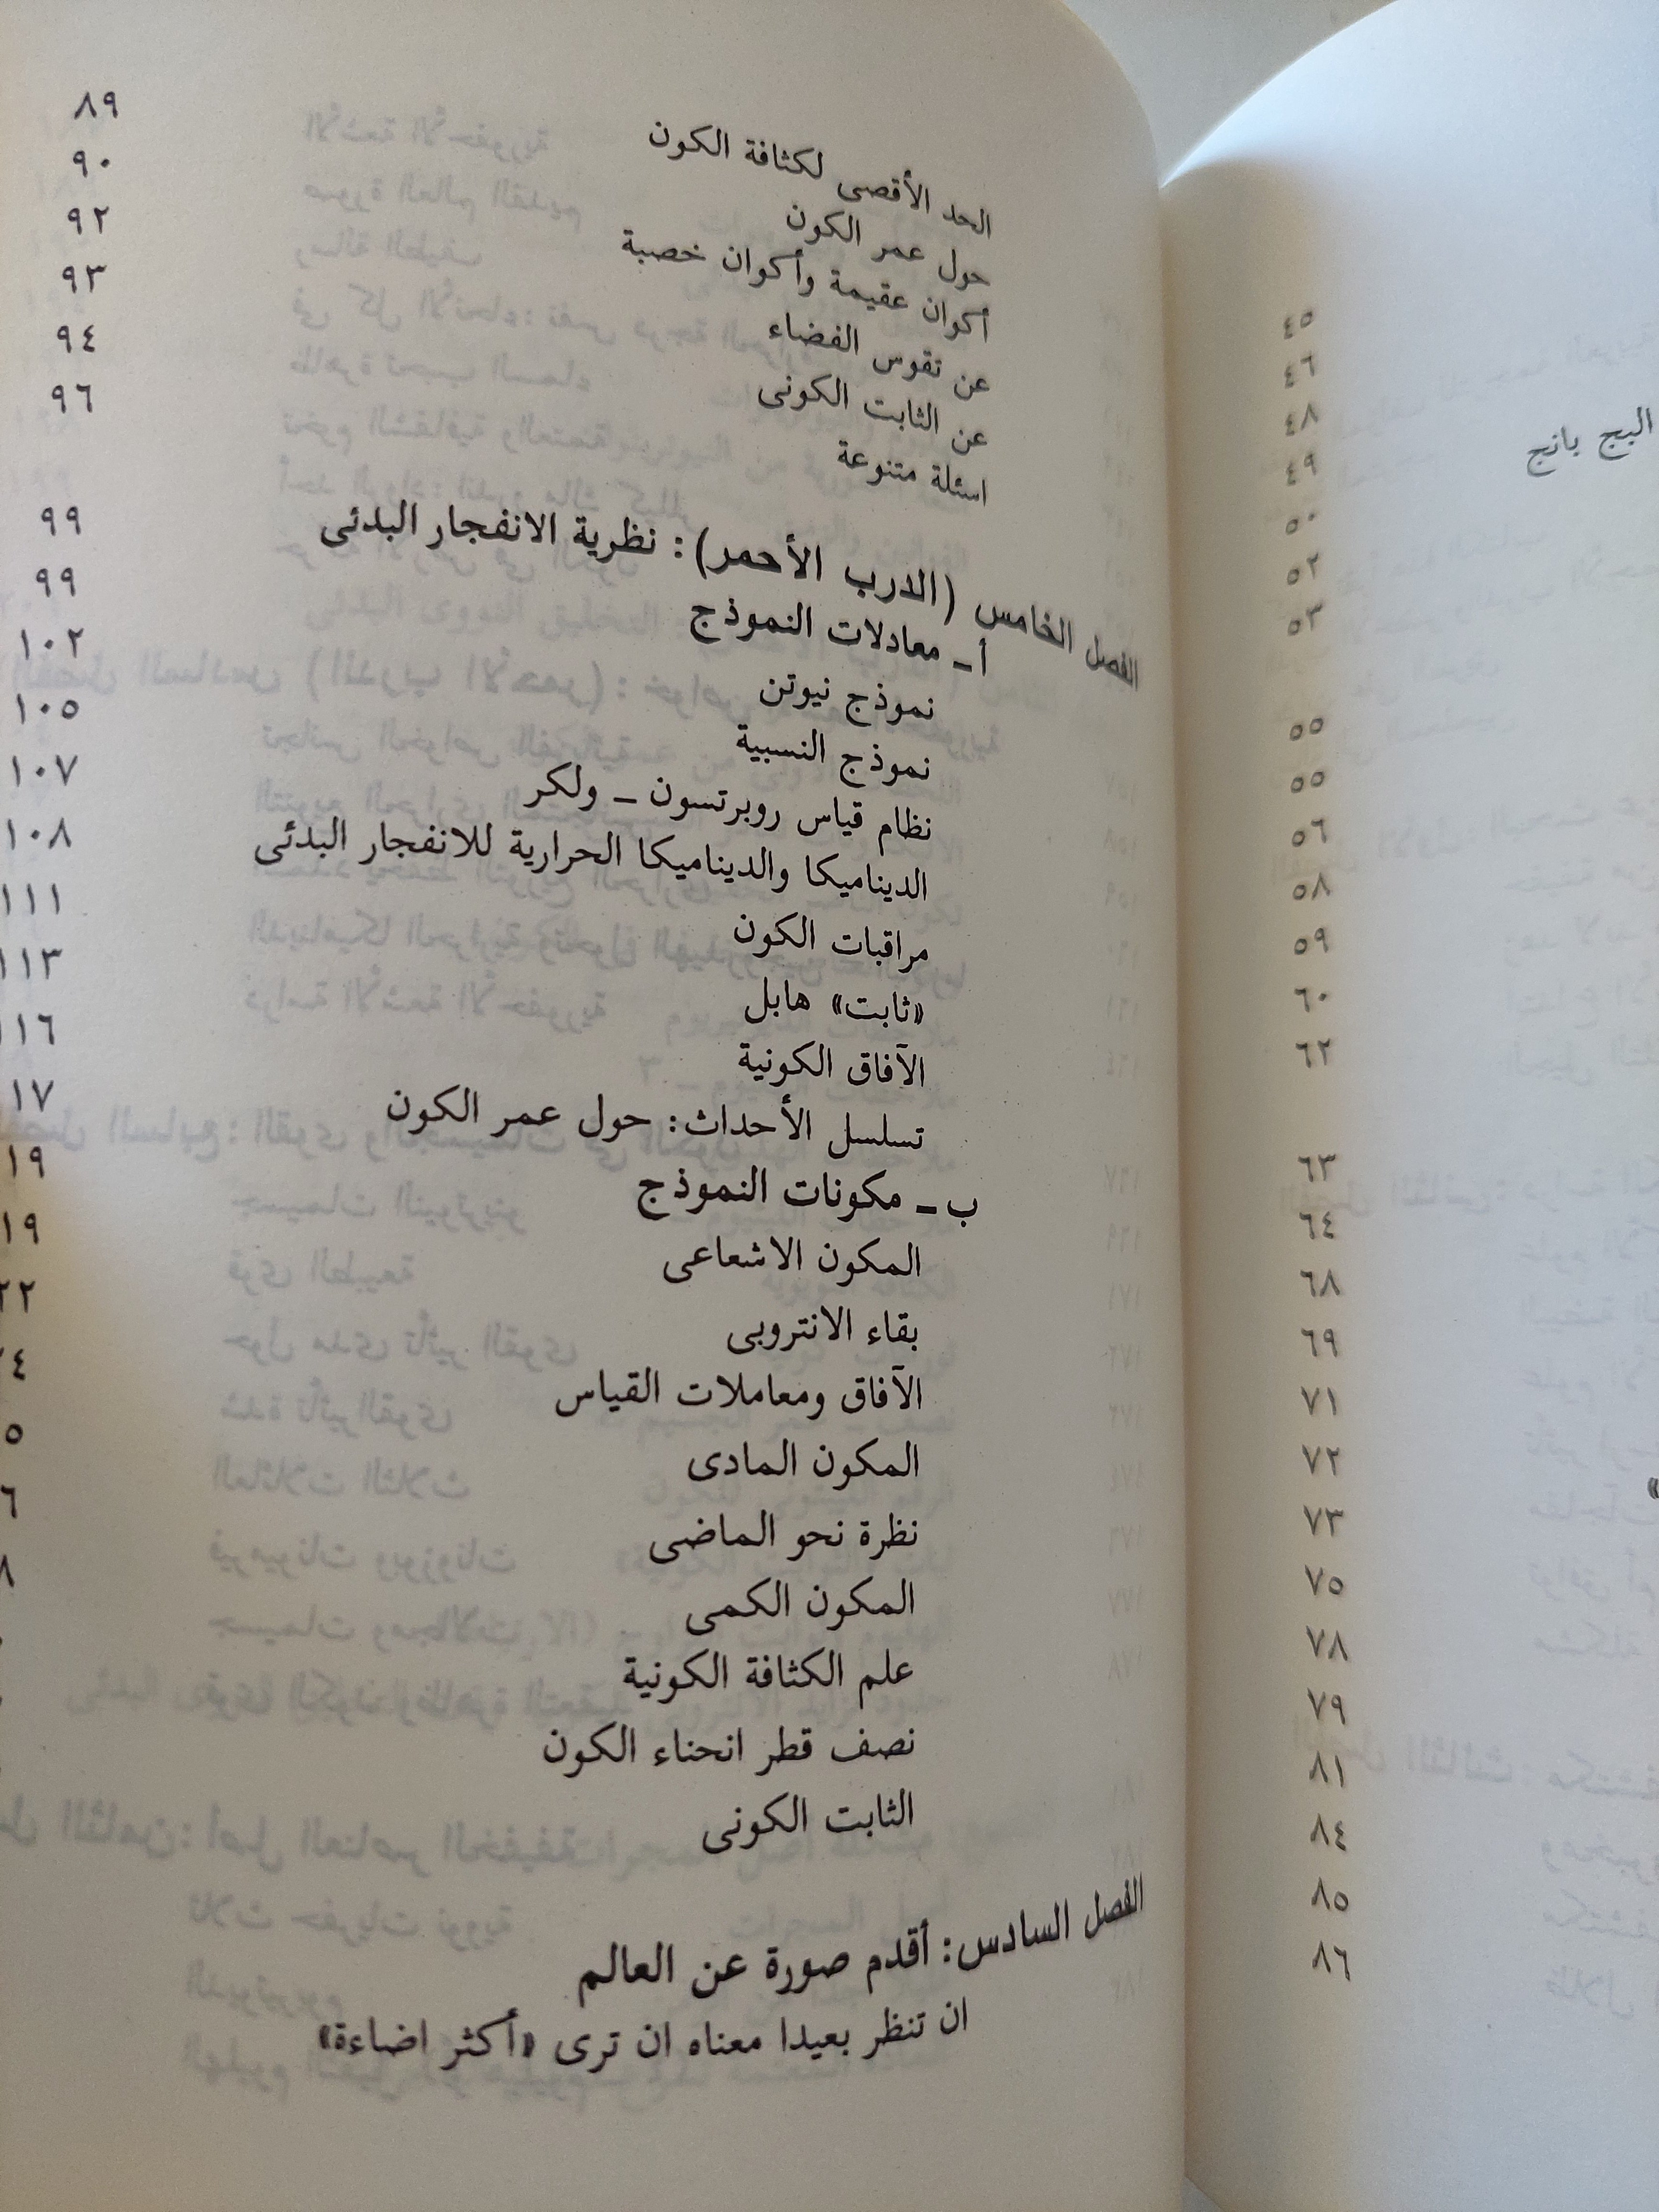 البج بانج
٤٥
٤٦
٤٨
٤٩
٥٠
٥٢
٥٣
٥٥
٥٥
٥٦
٥٨
٥٩
٦٠
٦٢
٦٣
٦٤
٦٨
٦٩
٧١
٧٢
٧٣
٧٥
٧٨
٧٩
٨١
٨٤
٨٥
٨٦
الحد الأقصى لكثافة الكون ٨٩
حول عمر الكون ٩٠
أكوان عقيمة وأكوان خصبة ٩٢
عن تقوس الفضاء ٩٣
عن الثابت الكونى ٩٤
اسئلة متنوعة ٩٦
الفصل الخامس (الدرب الأحمر): نظرية الانفجار البدئى ٩٩
أ ــ معادلات النموذج ٩٩
نموذج نيوتن ١٠٢
نموذج النسبية ١٠٥
نظام قياس روبرتسون ــ ولكر ١٠٧
الديناميكا والديناميكا الحرارية للانفجار البدئى ١٠٨
مراقبات الكون ١١١
«ثابت» هابل ١١٣
الآفاق الكونية ١١٦
تسلسل الأحداث: حول عمر الكون ١٧
ب ــ مكونات النموذج ١٩
المكون الاشعاعى ١٩
بقاء الانتروبى ٢٢
الآفاق ومعاملات القياس ٤
المكون المادى ٥
نظرة نحو الماضى ٦
المكون الكمى ٨
علم الكثافة الكونية
نصف قطر انحناء الكون
الثابت الكونى
الفصل السادس: أقدم صورة عن العالم
ان تنظر بعيدا معناه ان ترى «أكثر اضاءة»